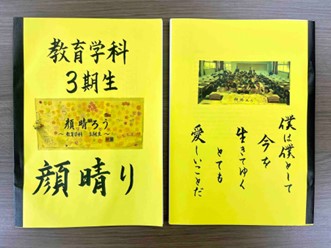 教育学科
3期生
顔晴ろう
～教育学科 3期生～
顔晴り
僕は僕として
今を
生きてゆく
とても
愛しいことだ